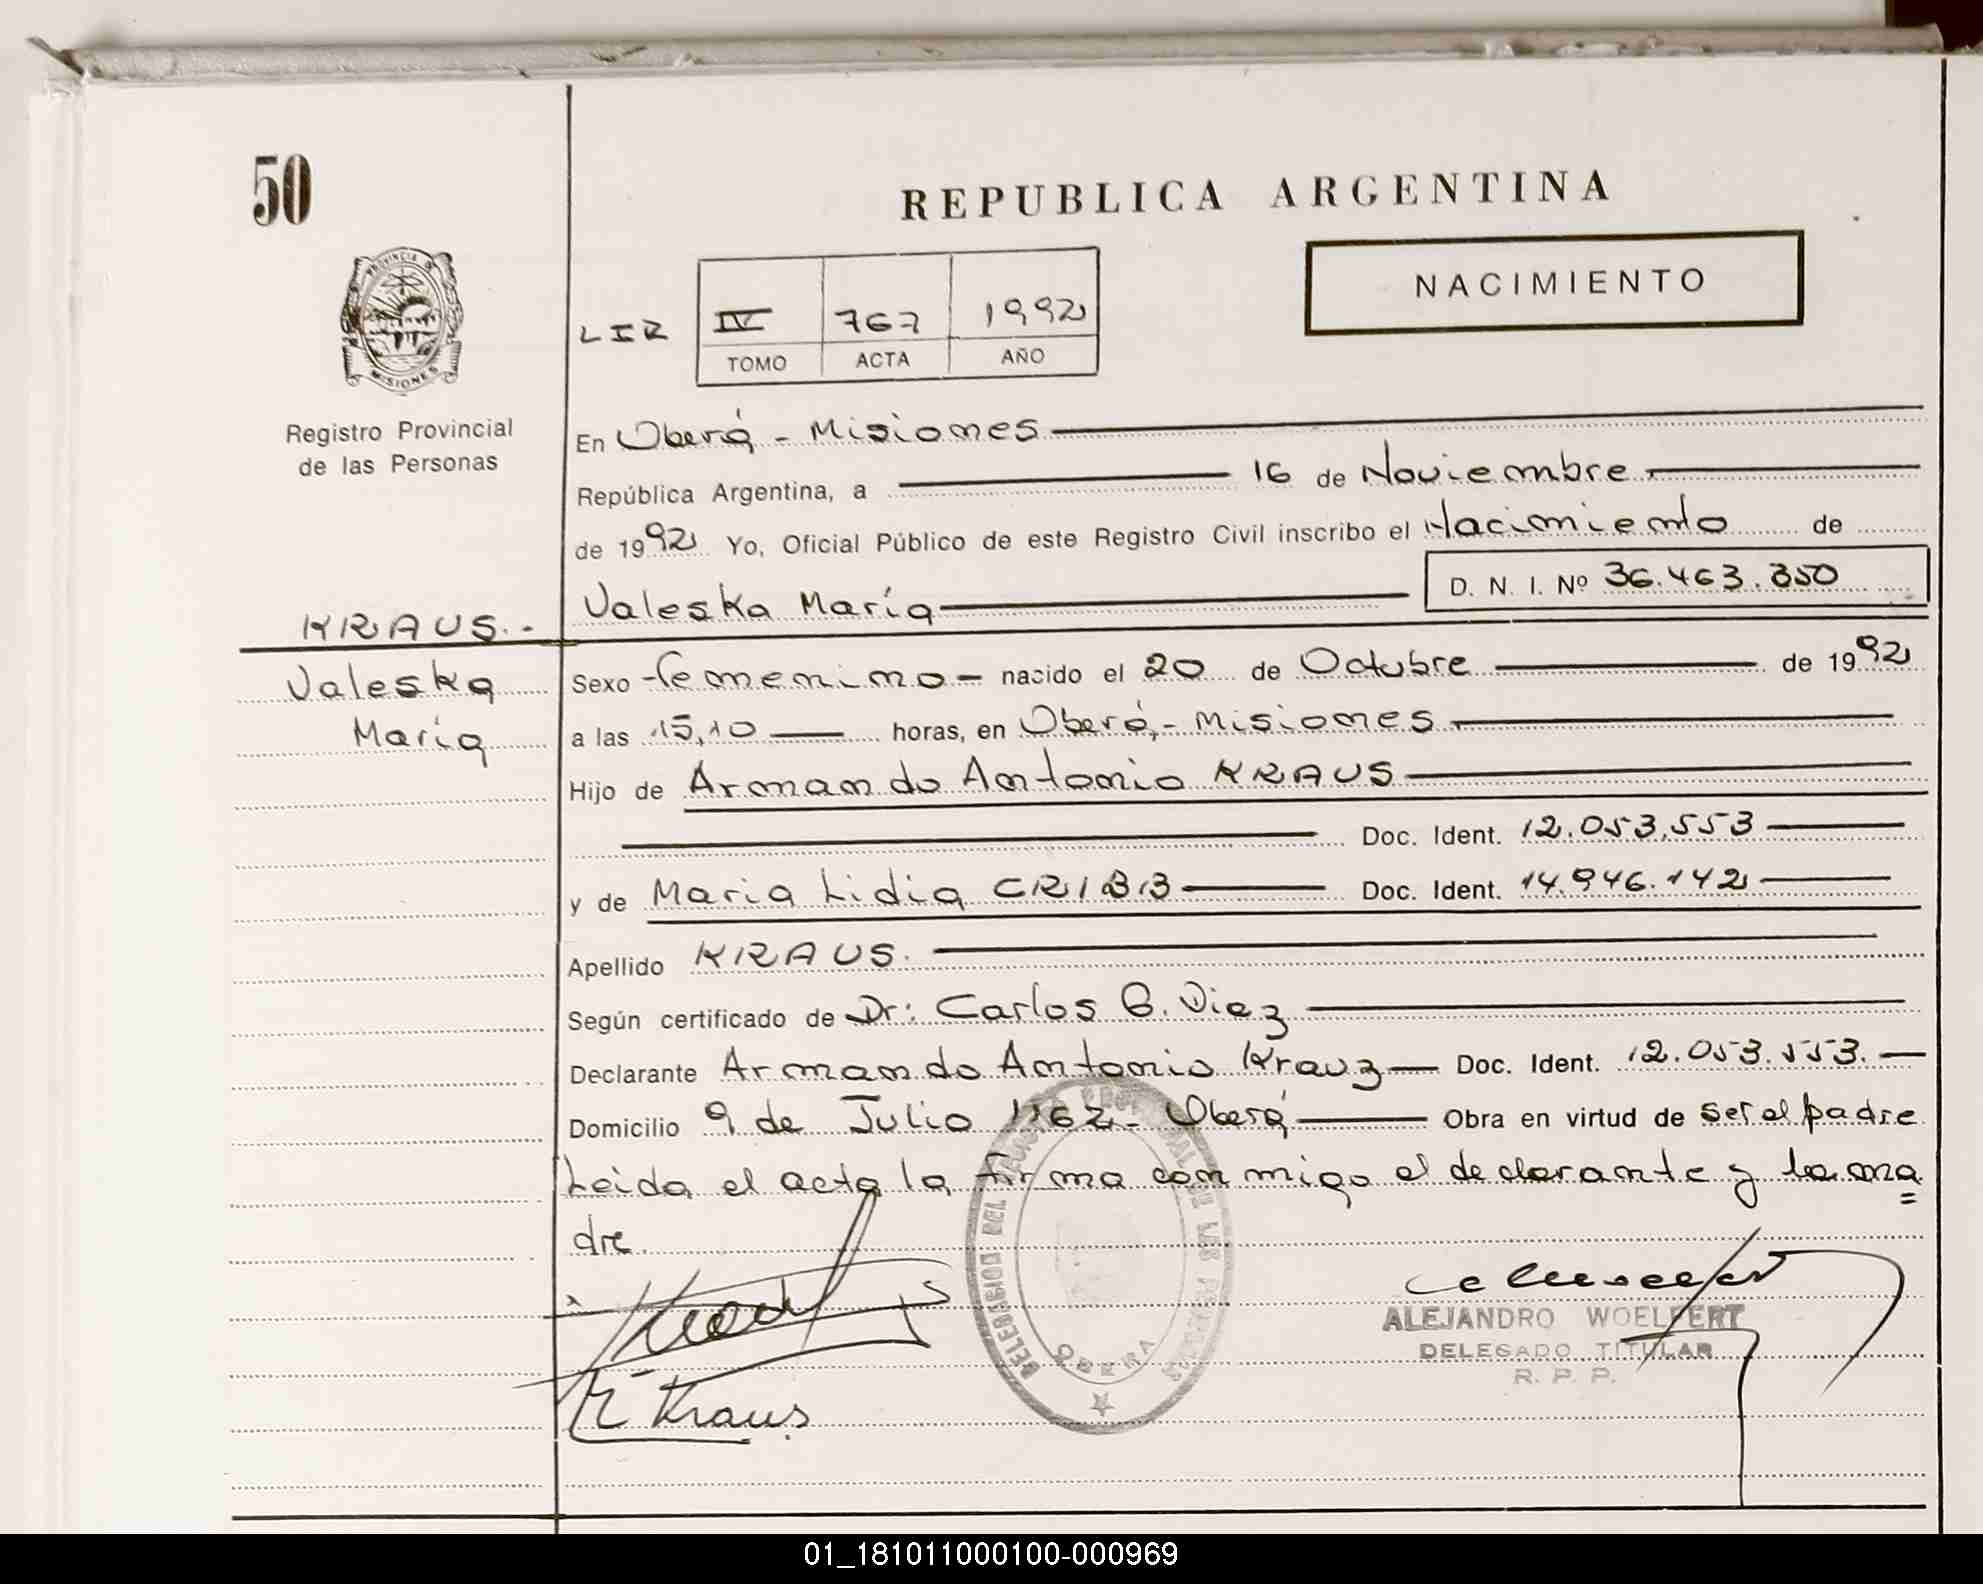 50
REPUBLICA ARGENTINA
PROVINCIA D
MISIONES
Registro Provincial
de las Personas
NACIMIENTO
LIR IV 767 1992
TOMO ACTA AÑO
En Oberá - Misiones
República Argentina, a 16 de Noviembre
de 1992 Yo, Oficial Público de este Registro Civil inscribo el Nacimiento de
Valeska María D. N. I. Nº 36.463.350
KRAUS.-
Valeska
María
Sexo femenino - nacido el 20 de Octubre de 1992
a las 15,10 horas, en Oberá,- Misiones
Hijo de Armando Antonio KRAUS
Doc. Ident. 12.053.553
y de Maria Lidia CRIBB Doc. Ident. 14.946.142
Apellido KRAUS.
Según certificado de Dr: Carlos G. Diez
Declarante Armando Antonio Krauz Doc. Ident. 12.053.553.
Domicilio 9 de Julio 1162 - Oberá Obra en virtud de ser el padre
Leida el acta la firma conmigo el declarante y la ma
dre.
Kraus
OBERA
ALEJANDRO WOELFERT
DELEGADO TITULAR
R. P. P.
01_181011000100-000969